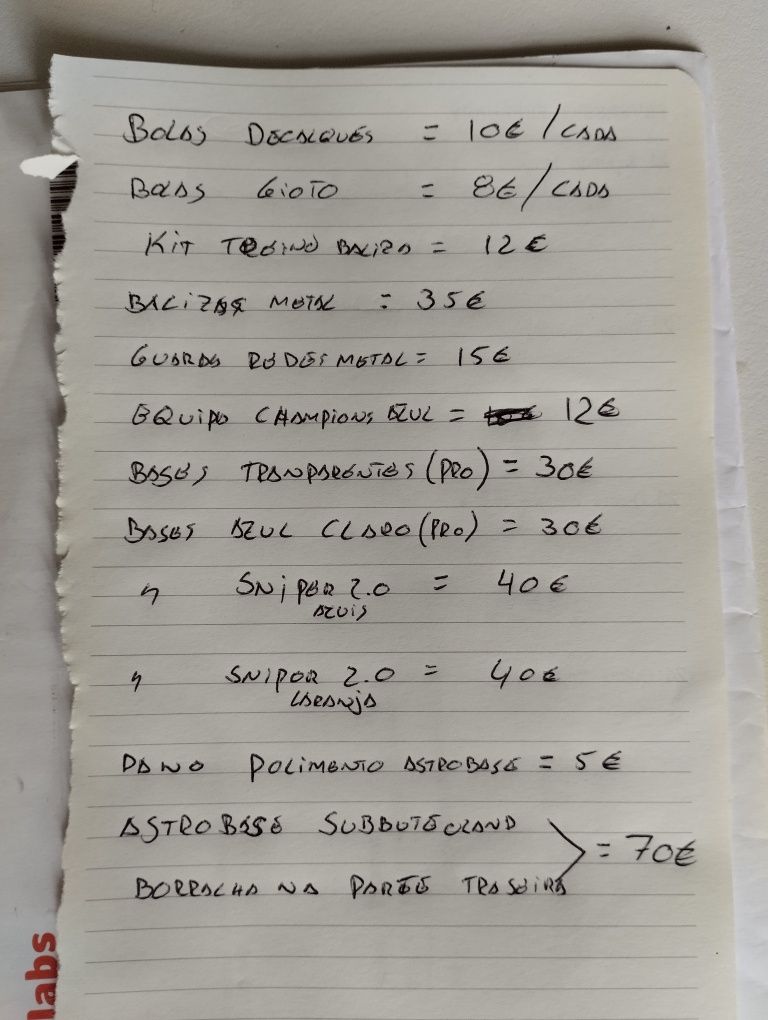 BOLAS DECALQUES = 10€ / CADA
BOLAS GIOTO = 8€ / CADA
KIT TREINO BALIZA = 12€
BALIZAS METAL = 35€
GUARDA REDES METAL = 15€
EQUIPA CHAMPIONS AZUL = 12€
BASES TRANPARENTES (PRO) = 30€
BASES AZUL CLARO (PRO) = 30€
" SNIPER 2.0 = 40€
AZUIS
" SNIPER 2.0 = 40€
LARANJA
PANO POLIMENTO ASTROBASE = 5€
ASTROBASE SUBBUTEOLAND
= 70€
BORRACHA NA PARTE TRASEIRA
labs